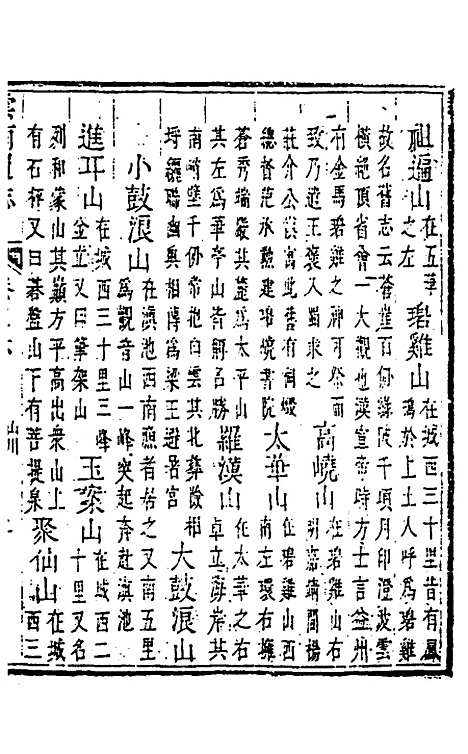 祖遍山在五華之左 碧雞山在城西三十里昔有鳳鳴於上土人呼為碧雞
故名舊志云蒼崖百仞綠陂千頃月印澄波雲
橫絕頂省會一大觀也漢宣帝時方士言益州
有金馬碧雞之神可祭而致乃遣王褒入蜀求之
高嶢山在碧雞山右明嘉靖間楊莊介公寓此舊有祠燬
總督范承勲建碧嶢書院
太華山在碧雞山西南左環右擁
蒼秀端嚴其麓為太平山其左為華亭山皆饒名勝
羅漢山在太華之右卓立海岸其
南峭壁千仞常抱白雲其北彝微相坪纚聯幽奧相傳為梁王避暑宮
大鼓浪山
小鼓浪山在滇池西南濱者又南五里為觀音山一峰突起奔赴滇池
進耳山在城西三十里三峰並立又曰筆架山
玉案山在城西二十里又名
列和蒙山其巔方平高出衆山上有石枰又曰碁盤山下有菩提泉
聚仙山在城西三